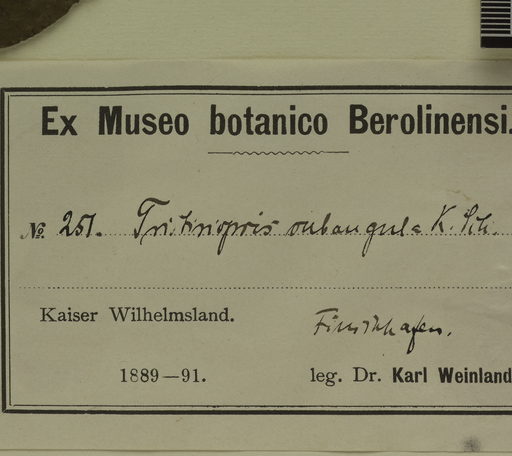 Ex Museo botanico Berolinensi.
No. 251. Tristiropsis subangula K. Sch.
Kaiser Wilhelmsland. Finschhafen.
1889—91. leg. Dr. Karl Weinland